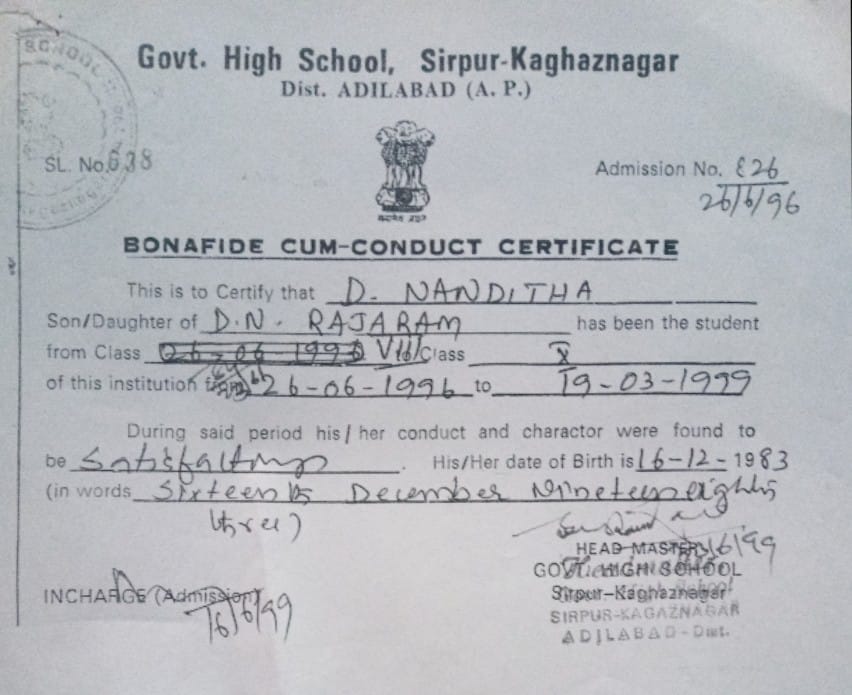 Govt. High School, Sirpur-Kaghaznagar
Dist. ADILABAD (A. P.)
SL. No. 638
Admission No. 826
26/6/96
BONAFIDE CUM-CONDUCT CERTIFICATE
This is to Certify that D. NANDITHA
Son/Daughter of D.N. RAJARAM has been the student
from Class VIII Class X
of this institution 26-06-1996 to 19-03-1999
During said period his/her conduct and charactor were found to
be Satisfactory. His/Her date of Birth is 16-12-1983
(in words Sixteenth December Nineteen eighty
three)
HEAD MASTER 16/6/99
GOVT. HIGH SCHOOL
INCHARGE (Admission) Sirpur-Kaghaznagar
16/6/99 SIRPUR-KAGAZNAGAR
ADILABAD-Dist.